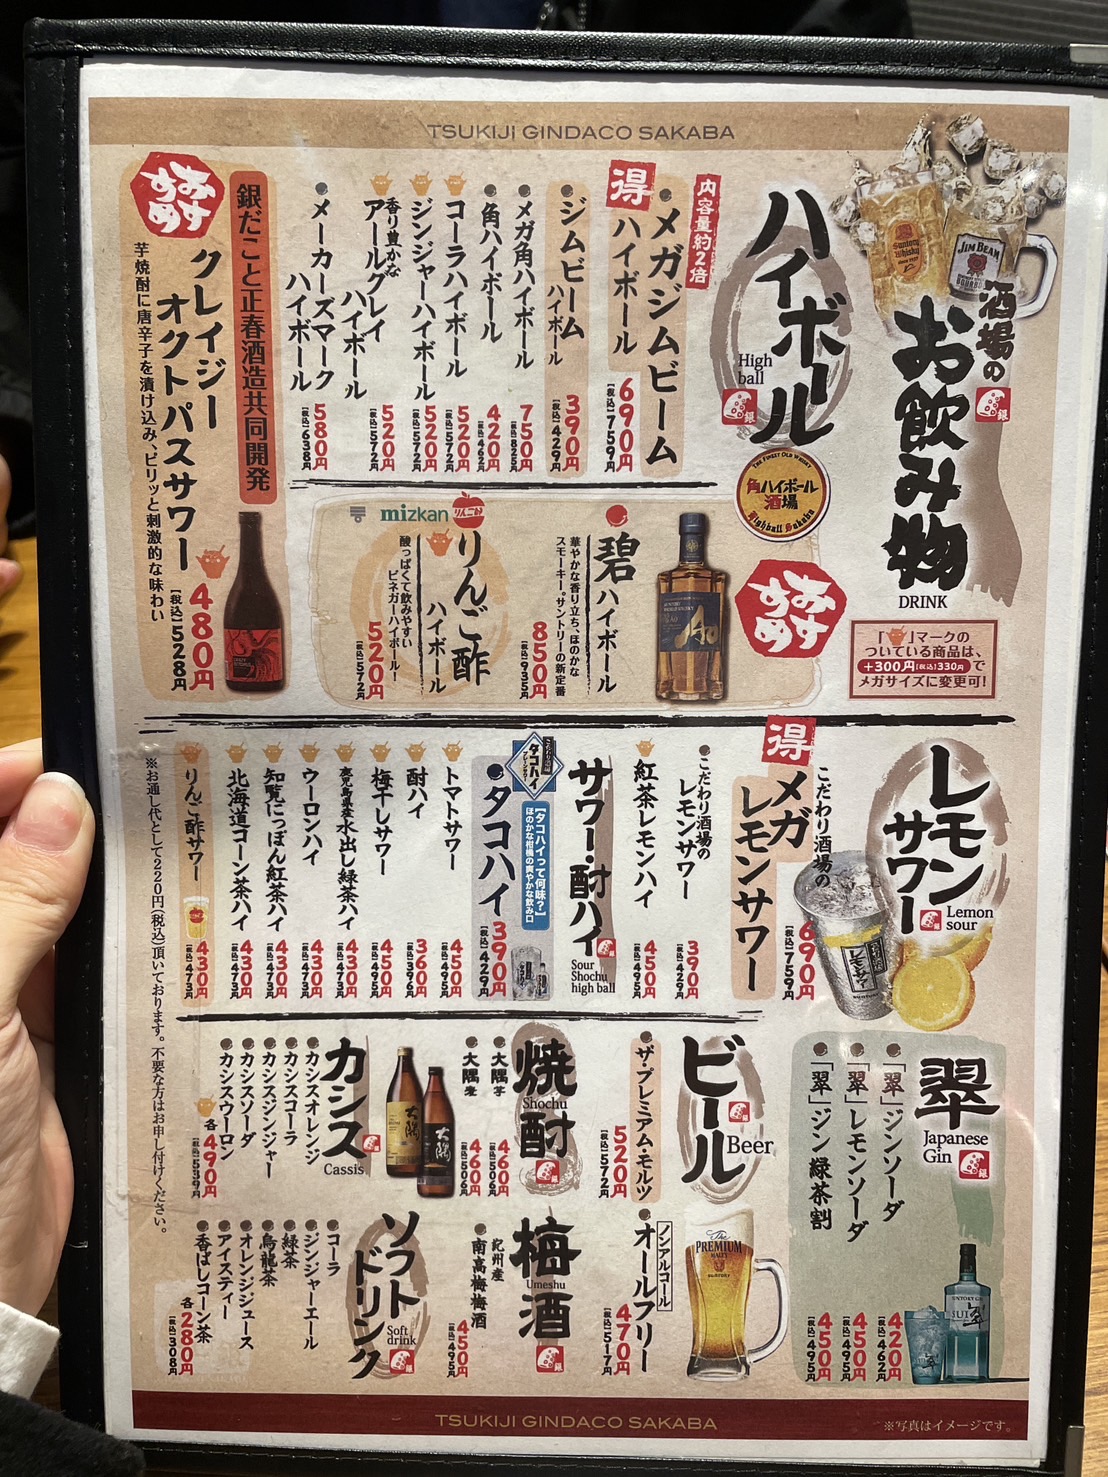 TSUKIJI GINDACO SAKABA
酒場の
お飲み物
DRINK
「」マークの
ついている商品は、
+300円[税込]330円で
メガサイズに変更可!
ハイボール
High
ball
銀
THE FINEST OLD WHISKY
角ハイボール
酒場
Highball Sakaba
内容量約2倍
得
メガジムビーム
ハイボール
690円
[税込]759円
ジムビーム
ハイボール
390円
[税込]429円
メガ角ハイボール
750円
[税込]825円
角ハイボール
420円
[税込]462円
コーラハイボール
520円
[税込]572円
ジンジャーハイボール
520円
[税込]572円
香り豊かな
アールグレイ
ハイボール
520円
[税込]572円
メーカーズマーク
ハイボール
580円
[税込]638円
おすすめ
銀だこと正春酒造共同開発
クレイジー
オクトパスサワー
芋焼酎に唐辛子を漬け込み、ピリッと刺激的な味わい
480円
[税込]528円
おすすめ
碧ハイボール
華やかな香り立ち、ほのかな
スモーキー。サントリーの新定番
850円
[税込]935円
mizkan
りんご酢
りんご酢
ハイボール
酸っぱくて飲みやすい
ビネガーハイボール!
520円
[税込]572円
レモン
サワー
Lemon
sour
得
こだわり酒場の
メガ
レモンサワー
690円
[税込]759円
こだわり酒場の
レモンサワー
390円
[税込]429円
紅茶レモンハイ
450円
[税込]495円
サワー・酎ハイ
Sour
Shochu
high ball
タコハイ
プレーンサワー
【タコハイって何味?】
ほのかな柑橘の爽やかな飲み口
タコハイ
390円
[税込]429円
トマトサワー
450円
[税込]495円
酎ハイ
360円
[税込]396円
梅干しサワー
450円
[税込]495円
鹿児島県産水出し緑茶ハイ
430円
[税込]473円
ウーロンハイ
430円
[税込]473円
知覧にっぽん紅茶ハイ
430円
[税込]473円
北海道コーン茶ハイ
430円
[税込]473円
りんご酢サワー
430円
[税込]473円
※お通し代として220円(税込)頂いております。不要な方はお申し付けください。
翠
Japanese
Gin
「翠」ジンソーダ
420円
[税込]462円
「翠」レモンソーダ
450円
[税込]495円
「翠」ジン緑茶割
450円
[税込]495円
ビール
Beer
ザ・プレミアム・モルツ
520円
[税込]572円
ノンアルコール
オールフリー
470円
[税込]517円
焼酎
Shochu
大隅 芋
460円
[税込]506円
大隅 麦
460円
[税込]506円
梅酒
Umeshu
紀州産
南高梅梅酒
450円
[税込]495円
カシス
Cassis
カシスオレンジ
カシスコーラ
カシスジンジャー
カシスソーダ
カシスウーロン
各490円
[税込]539円
ソフト
ドリンク
Soft
drink
コーラ
ジンジャーエール
緑茶
烏龍茶
オレンジジュース
アイスティー
香ばしコーン茶
各280円
[税込]308円
TSUKIJI GINDACO SAKABA
※写真はイメージです。